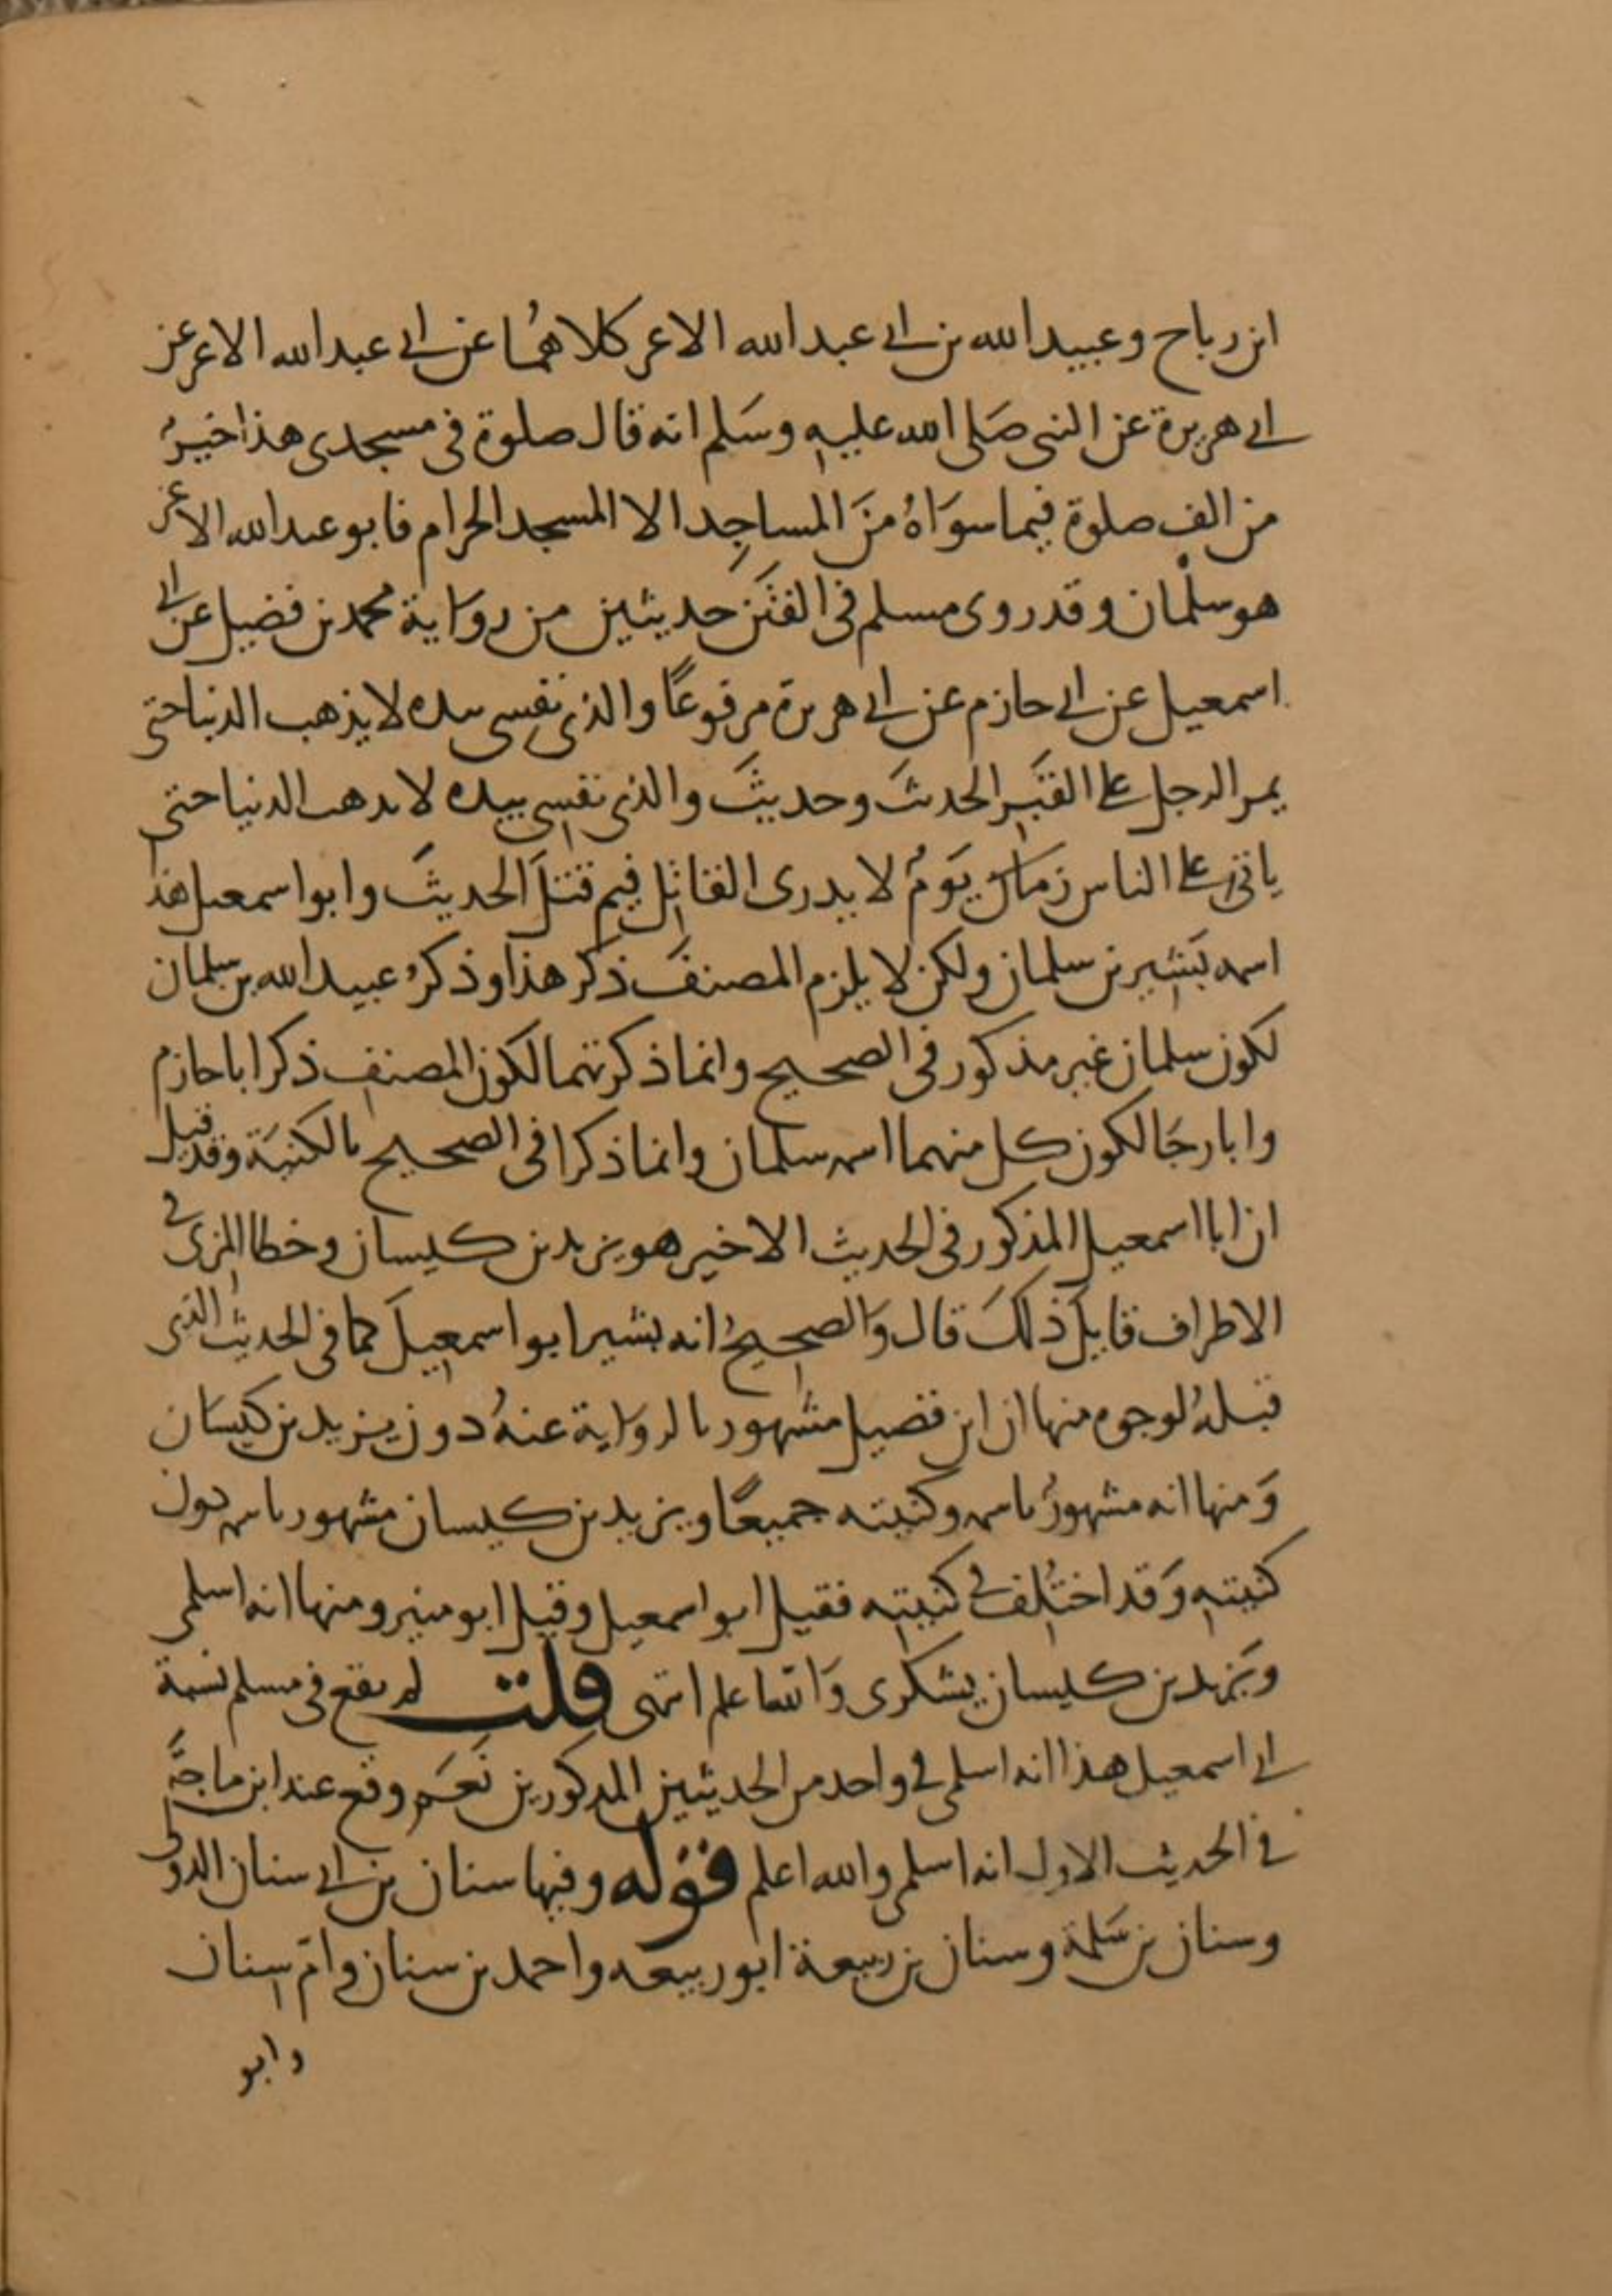 ابن رباح وعبيد الله بن ابى عبد الله الاغر كلاهُما عن ابى عبد الله الاغر عن
ابى هريرة عن النبى صَلى الله عليه وسَلم انه قال صلوة فى مسجدى هذا خيرُ
من الف صلوة فيما سوَاهُ منَ المساجِد الا المسجد الحرام فابو عبد الله الاغر
هو سلْمان وقد روى مسلم فى الفتَن حديثين من روَاية محمد بن فضيل عن ابى
اسمعيل عن ابى حازم عن ابى هريرة مرفوعًا والذى نفسى بيده لا يذهب الدنيا حتى
يمر الرجل على القبَر الحديثَ وحديثَ والذى نفسى بيده لا يذهب الدنيا حتى
ياتى على الناس زمان يَومُ لا يدرى القاتل فيم قتلَ الحديثَ وابو اسمعيل هذا
اسمه بَشير بن سلمان ولكن لا يلزم المصنفَ ذكر هذا وذكرُ عبيد الله بن سلمان
لكون سلمان غير مذكور فى الصحيح وانما ذكرتهما لكون المصنف ذكر ابا حازم
وابا رجَا لكون كل منهما اسمه سلمان وانما ذكرا فى الصحيح بالكنيَة وقد قيل
ان ابا اسمعيل المذكور فى الحديث الاخير هو يزيد بن كيسان وخطا المزى فى
الاطراف قايلَ ذلكَ قال وَالصحيحُ انه بشير ابو اسمعيلَ كما فى الحديث الذى
قبلهُ لوجوه منها ان ابن فضيل مشهور بالروَاية عنهُ دون يزيد بن كيسَان
وَمنها انه مشهورُ باسمه وكنيته جميعًا ويزيد بن كيسان مشهور باسمه دون
كنيته وَقد اختُلف فى كنيته فقيل ابو اسمعيل وقيل ابو منير ومنها انه اسلمى
ويَزيد بن كيسان يشكرى وَالله اعلم انتهى قلت لم يقع فى مسلم نسبة
ابى اسمعيل هذا انه اسلمى فى واحد من الحديثين المذكورين نَعَم وقع عند ابن ماجَة
فى الحديث الاول انه اسلمى والله اعلم قوله وفيها سنان بن ابى سنان الدؤلى
وسنان بن سَلمة وسنان بن ربيعة ابو ربيعه واحمد بن سنان وامّ سنان
وابو